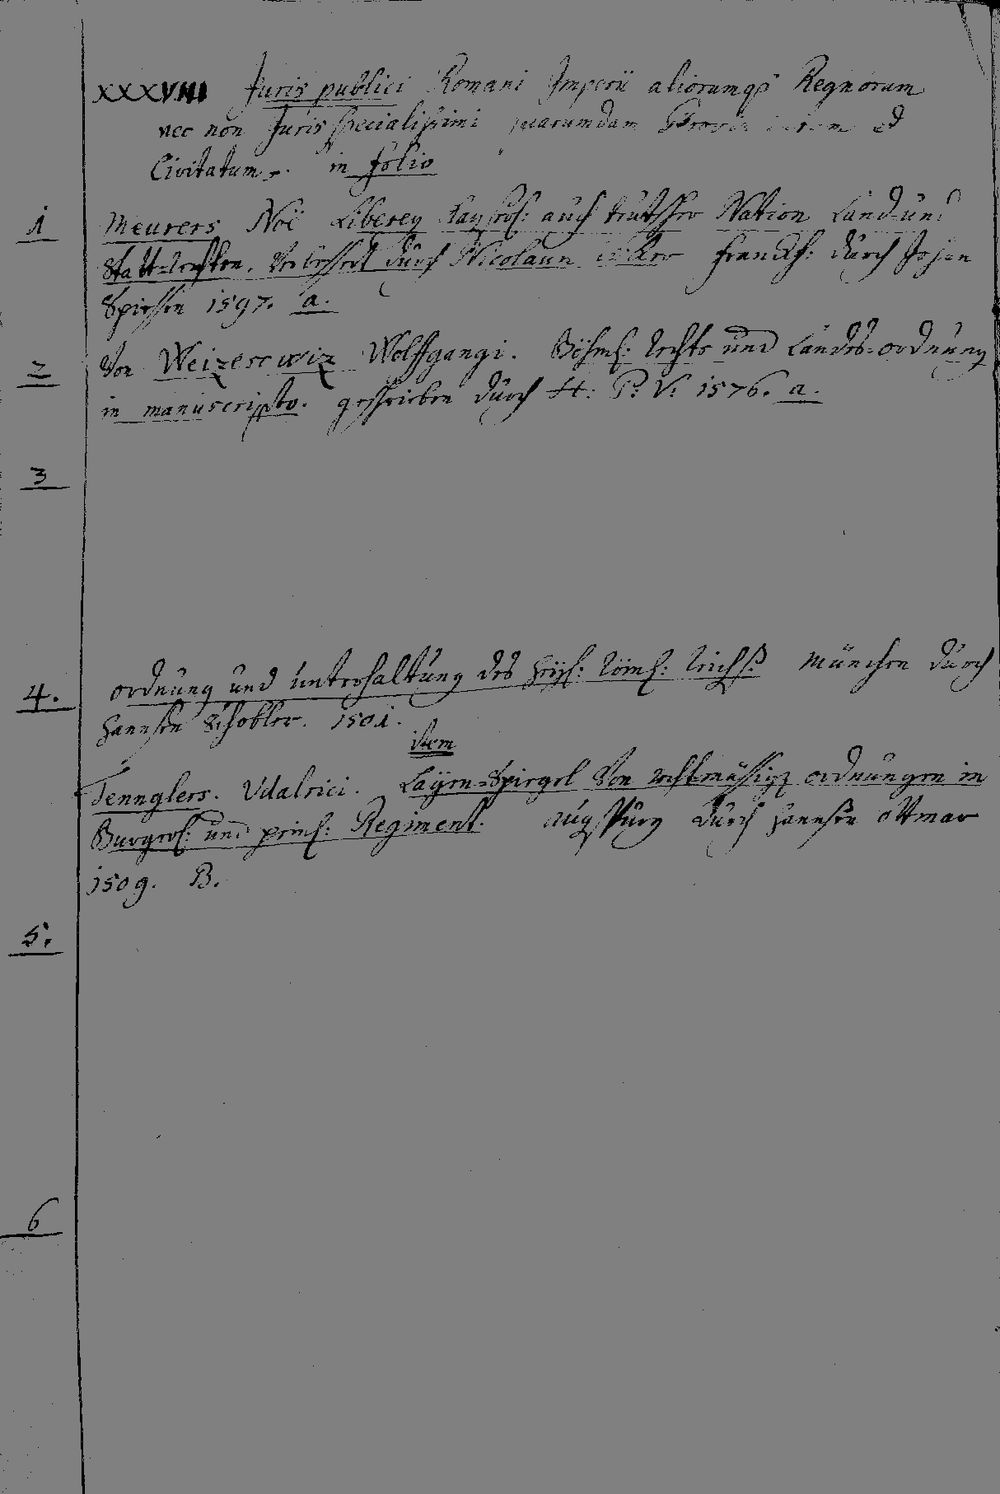 XXXVIII Juris publici Romani Imperii aliorumqʒ Regnorum
nec non Juris specialissimi quarumdam et
Civitatum. in folio
1 Meurers Noë Liberey Kayserl: auch teutscher Nation Land und
Statt-rechten. Verbessert durch Nicolaum Franckf: durch Johan
Spiessen 1597. a.
2 Von Wolffgangi. Böhmß: rechte und Landes-ordnung
in manuscripto. geschrieben durch H: P: V: 1576. a.
3
4. ordnung und unterhaltung des Heyl: Röm: Reichß München durch
Hannsen Schobser. 1501.
item
Tennglers. Udalrici. Layen-Spiegel Von rechtmässigen ordnungen in
Burgerl: und peinl: Regiment. Augspurg durch Hannsen ottmar
1509. B.
5.
6